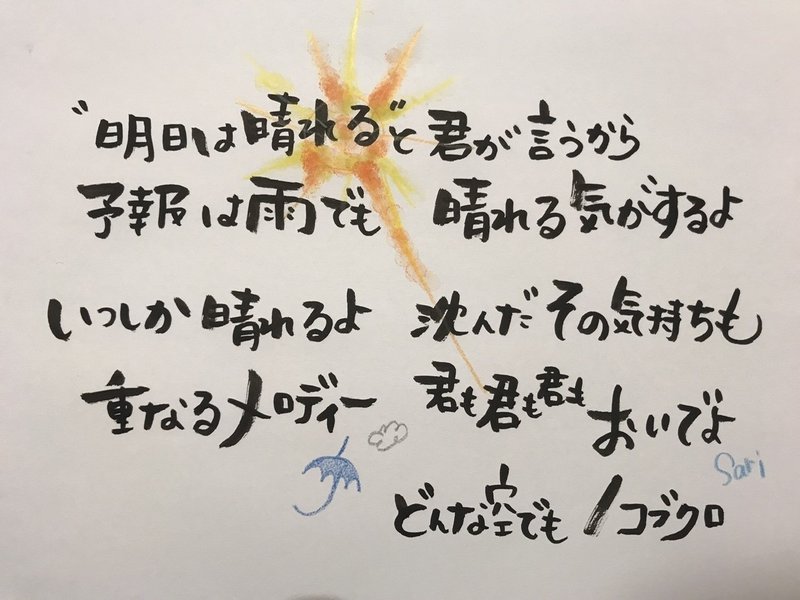 "明日は晴れる"と君が言うから
予報は雨でも 晴れる気がするよ
いつしか晴れるよ 沈んだその気持ちも
重なるメロディー 君も君も君も おいでよ
Sari
どんな空でも/コブクロ